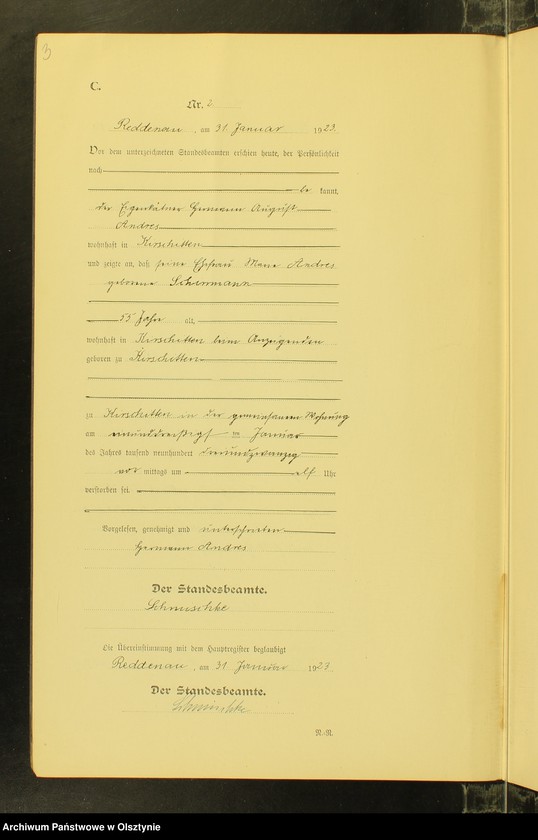 3
C.
Nr. 2
Reddenau, am 31 Januar 1923.
Vor dem unterzeichneten Standesbeamten erschien heute, der Persönlichkeit
nach
be kannt,
der Eigenkätner Hermann August
Andres
wohnhaft in Kirschitten
und zeigte an, daß seine Ehefrau Andres
geborene
55 Jahre alt,
wohnhaft in Kirschitten beim Anzeigenden
geboren zu Kirschitten
zu Kirschitten in der gemeinsamen Wohnung
am einunddreißigsten Januar
des Jahres tausend neunhundert dreiundzwanzig
vor mittags um elf Uhr
verstorben sei.
Vorgelesen, genehmigt und unterschrieben
Hermann Andres
Der Standesbeamte.
Die Übereinstimmung mit dem Hauptregister beglaubigt
Reddenau, am 31 Januar 1923.
Der Standesbeamte.
Archiwum Państwowe w Olsztynie